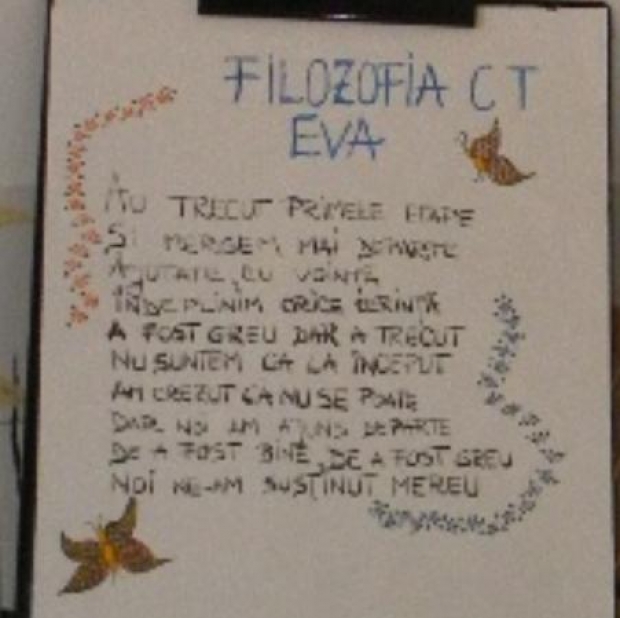 FILOZOFIA CT
EVA
AU TRECUT PRIMELE ETAPE
ȘI MERGEM MAI DEPARTE
AJUTATI, CU VOINTA
ÎNDEPLINIM ORICE CERINTA
A FOST GREU DAR A TRECUT
NU SUNTEM CA LA ÎNCEPUT
AM CREZUT CA NU SE POATE
DAR NOI AM AJUNS DEPARTE
DE A FOST BINE, DE A FOST GREU
NOI NE-AM SUSȚINUT MEREU